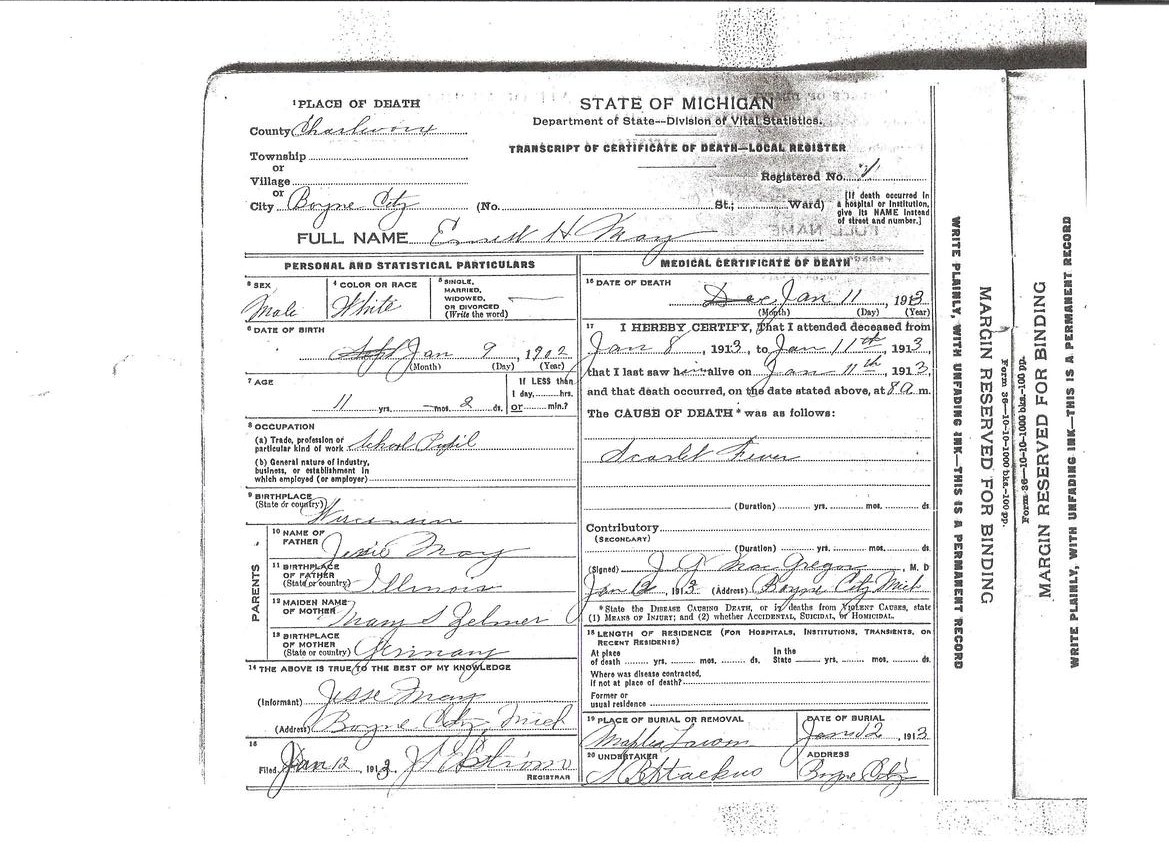 ¹PLACE OF DEATH
County Charlevoix
Township
or
Village
or
City Boyne City (No. St.; Ward)
STATE OF MICHIGAN
Department of State—Division of Vital Statistics.
TRANSCRIPT OF CERTIFICATE OF DEATH—LOCAL REGISTER
Registered No. 1
[If death occurred in
a hospital or institution,
give its NAME instead
of street and number.]
FULL NAME Ernest H May
PERSONAL AND STATISTICAL PARTICULARS
³ SEX
Male
⁴ COLOR OR RACE
White
⁵ SINGLE,
MARRIED,
WIDOWED,
OR DIVORCED
(Write the word)
⁶ DATE OF BIRTH
Sept Jan 9, 1902
(Month) (Day) (Year)
⁷ AGE
11 yrs. — mos. 2 ds.
If LESS than
1 day, hrs.
or min.?
⁸ OCCUPATION
(a) Trade, profession or
particular kind of work School Pupil
(b) General nature of industry,
business, or establishment in
which employed (or employer)
⁹ BIRTHPLACE
(State or country) Wisconsin
PARENTS
¹⁰ NAME OF
FATHER Jessie May
¹¹ BIRTHPLACE
OF FATHER
(State or country) Illinois
¹² MAIDEN NAME
OF MOTHER Mary S Zelmer
¹³ BIRTHPLACE
OF MOTHER
(State or country) Germany
¹⁴ THE ABOVE IS TRUE TO THE BEST OF MY KNOWLEDGE
(Informant) Jesse May
(Address) Boyne City, Mich
¹⁵
Filed Jan 12, 1913
REGISTRAR
MEDICAL CERTIFICATE OF DEATH
¹⁶ DATE OF DEATH
Dec Jan 11, 1913
(Month) (Day) (Year)
¹⁷ I HEREBY CERTIFY, That I attended deceased from
Jan 8, 1913, to Jan 11th, 1913,
that I last saw him alive on Jan 11th, 1913,
and that death occurred, on the date stated above, at 8 a. m.
The CAUSE OF DEATH* was as follows:
Scarlet Fever
(Duration) yrs. mos. ds
Contributory
(SECONDARY)
(Duration) yrs. mos. ds.
(Signed) J G MacGregor, M. D
Jan 12, 1913 (Address) Boyne City Mich
*State the DISEASE CAUSING DEATH, or in deaths from VIOLENT CAUSES, state
(1) MEANS OF INJURY; and (2) whether ACCIDENTAL, SUICIDAL, or HOMICIDAL.
¹⁸ LENGTH OF RESIDENCE (FOR HOSPITALS, INSTITUTIONS, TRANSIENTS, OR
RECENT RESIDENTS)
At place
of death yrs. mos. ds.
In the
State yrs. mos. ds.
Where was disease contracted,
if not at place of death?
Former or
usual residence
¹⁹ PLACE OF BURIAL OR REMOVAL
Maple Lawn
DATE OF BURIAL
Jan 12, 1913
²⁰ UNDERTAKER
S B Stackus
ADDRESS
Boyne City
WRITE PLAINLY, WITH UNFADING INK—THIS IS A PERMANENT RECORD
MARGIN RESERVED FOR BINDING
Form 36—10-10-1000 bks.-100 pp.
Form 36—10-10-1000 bks.-100 pp.
MARGIN RESERVED FOR BINDING
WRITE PLAINLY, WITH UNFADING INK—THIS IS A PERMANENT RECORD